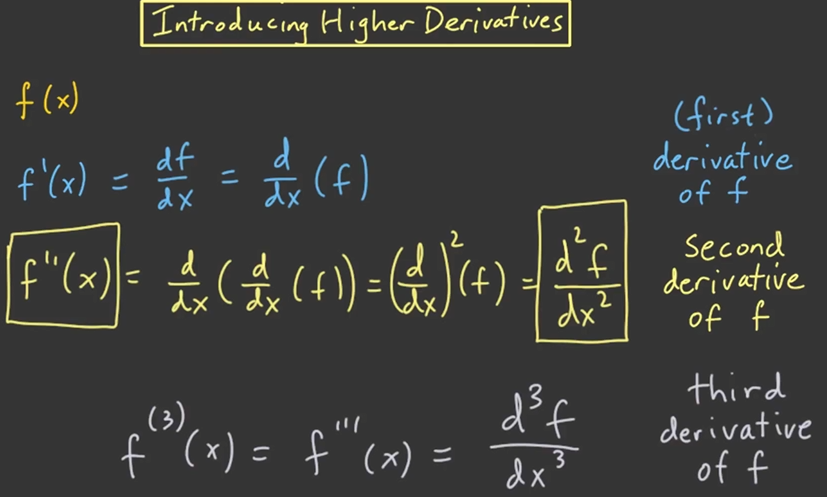 Introducing Higher Derivatives
f(x)
f'(x) = df/dx = d/dx (f)
(first)
derivative
of f
f''(x) = d/dx (d/dx (f)) = (d/dx)² (f) = d²f/dx²
second
derivative
of f
f⁽³⁾(x) = f'''(x) = d³f/dx³
third
derivative
of f